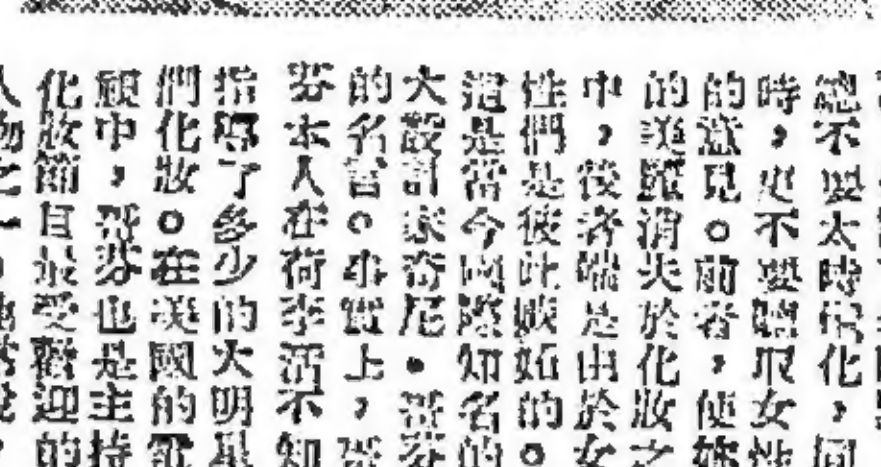 總不要太時髦化，同
時，更不要聽取女性
的意見。前者，使她
的美麗消失於化妝之
中，後者端是由於女
性們是彼此嫉妬的。
這是當今國際知名的
大設計家奇尼•哥芬
的名言。事實上，哥
芬本人在荷李活不知
指導了多少的大明星
們化妝。在美國的電
視中，哥芬也是主持
化妝節目最受歡迎的
人物之一